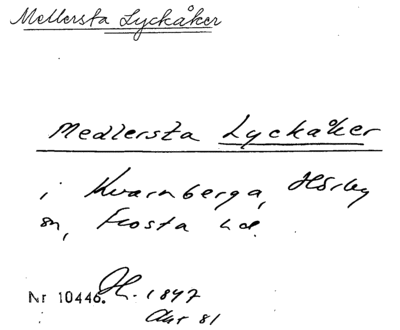 Mellersta Lyckåker
Medlersta Lyckåker
i Kvarnberga, Hörby
sn, Frosta hd.
Nr 10446. H. 1847
Akt 81